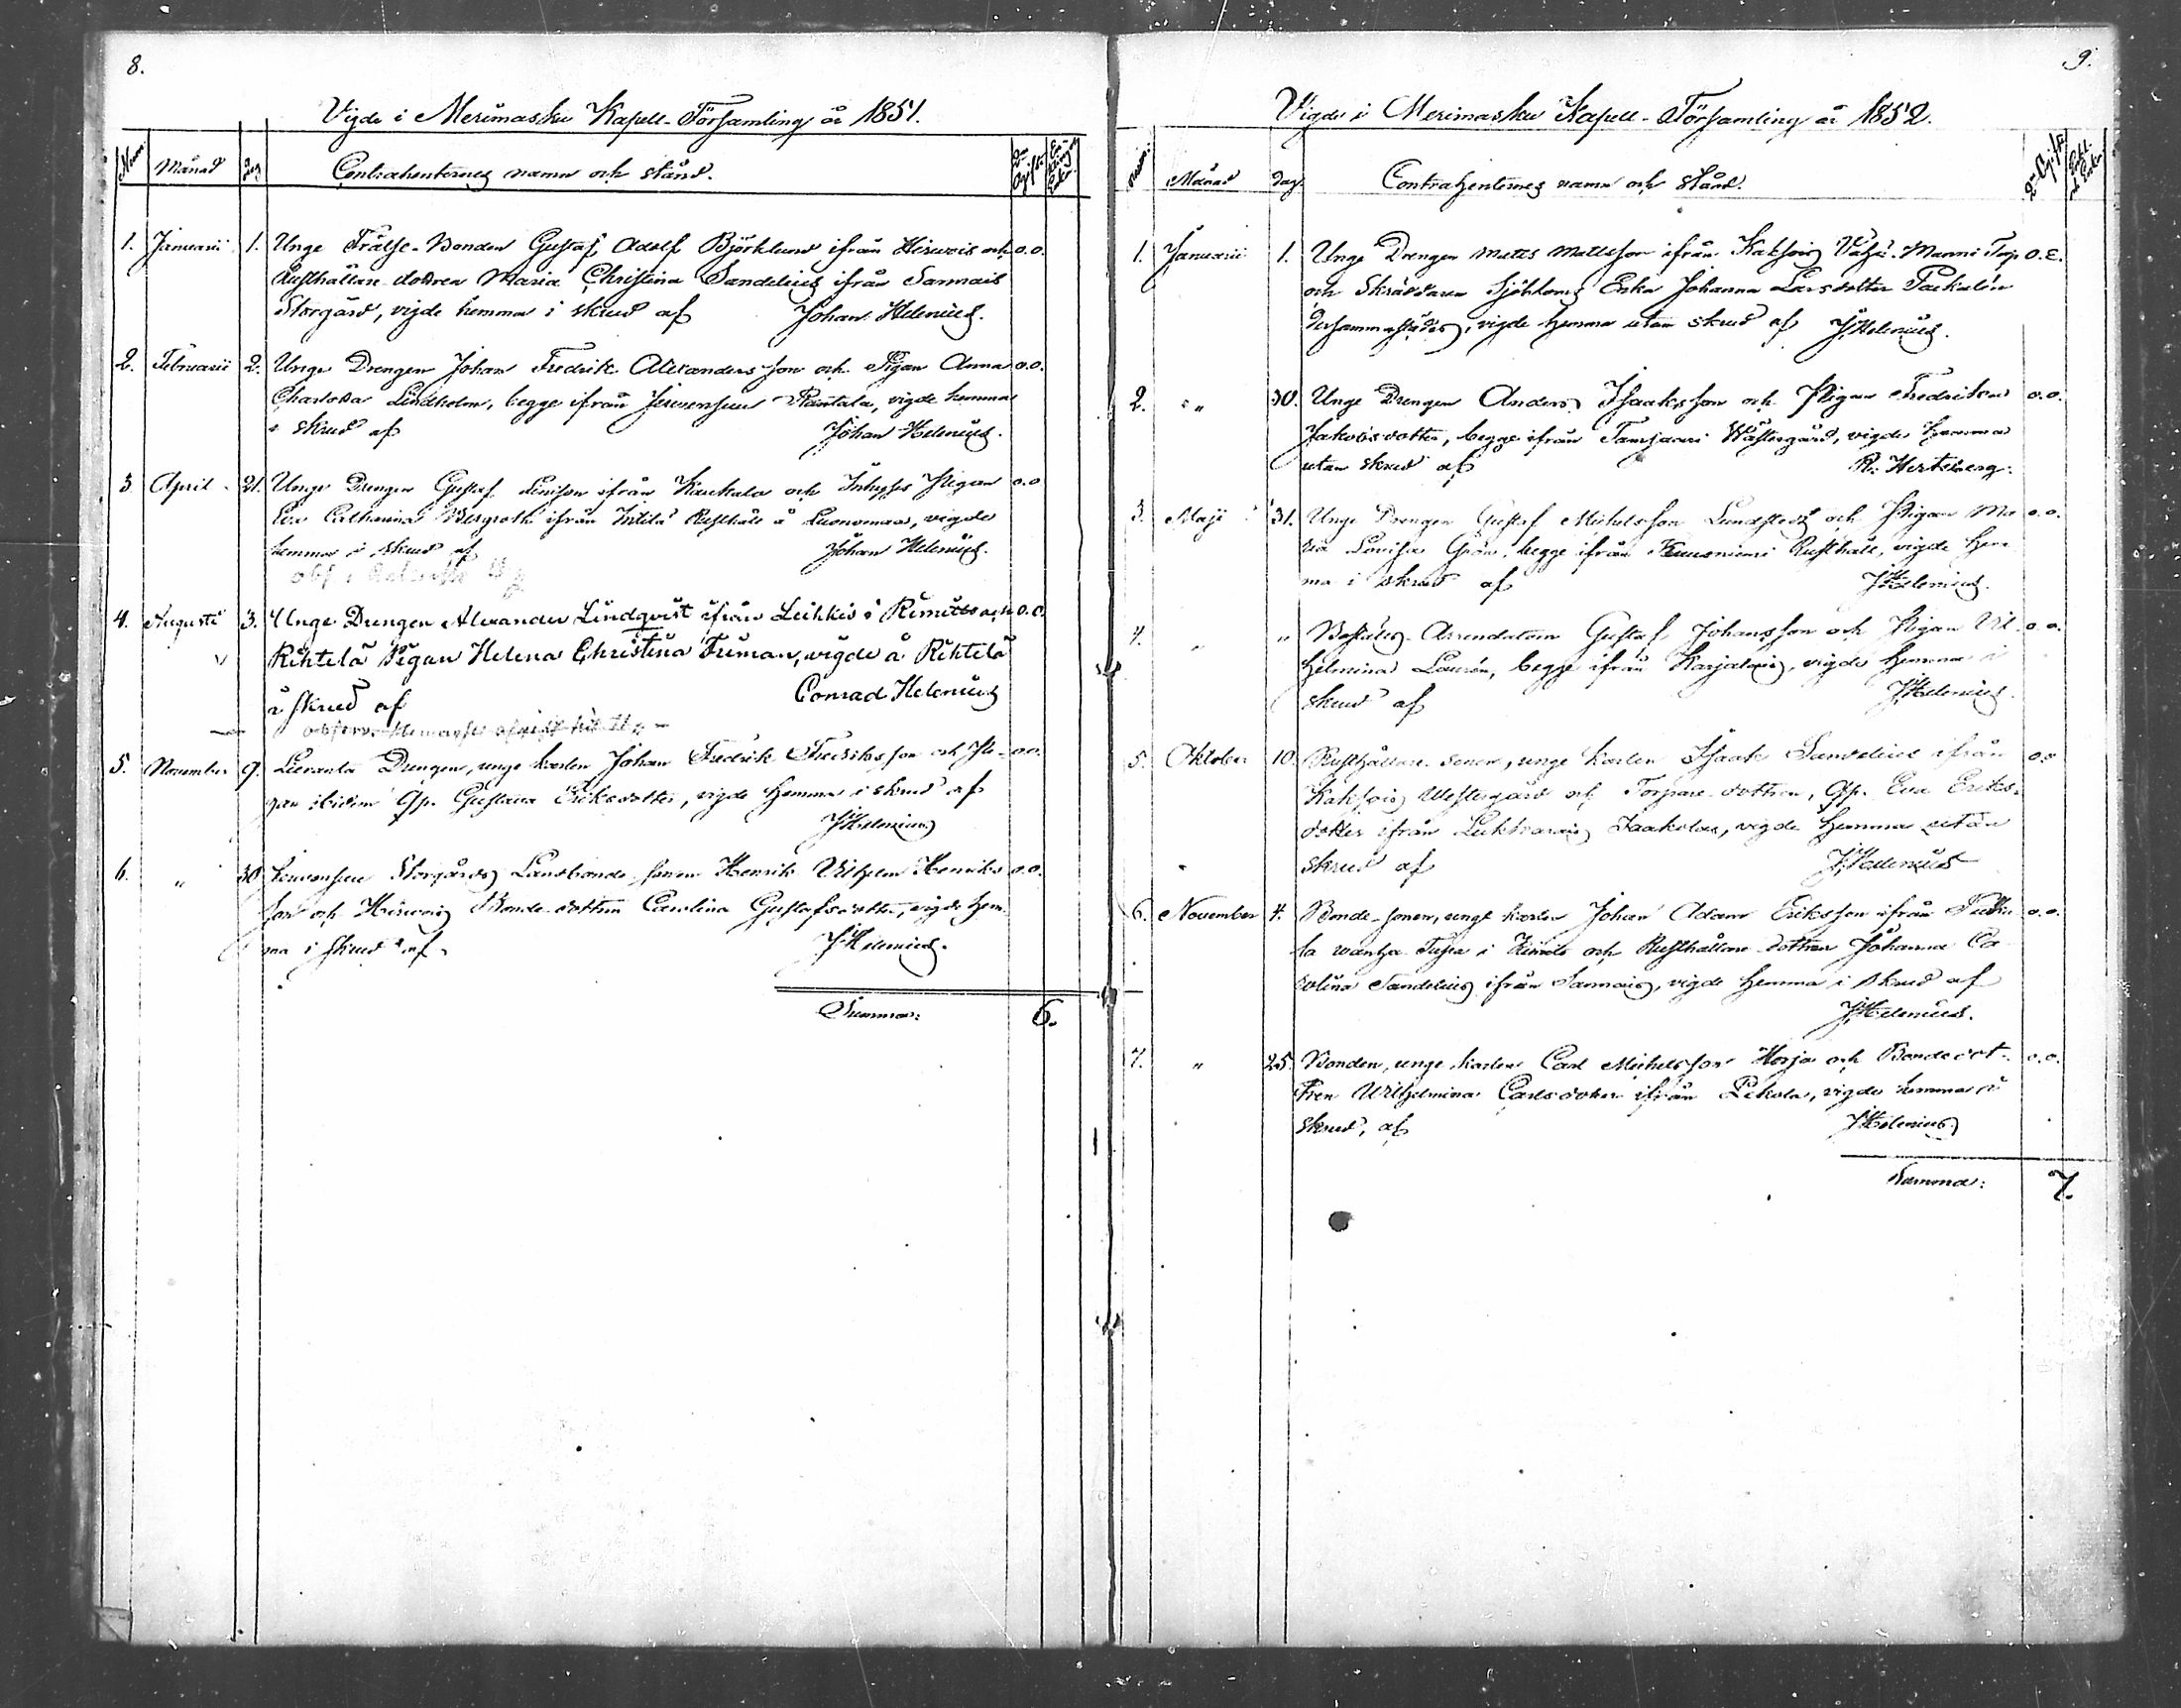 8.
Vigde i Merimasku Kapell-Församling år 1851.
Num: Månad Dag Contrahenternes namn och stånd.
1. Januarii 1. Unge Frälse-Bonden Gustaf Adolf Björklund ifrån Hirvois och o.o.
Rusthållare-dottren Maria Christina Sandelius ifrån Sannais
Storgård, vigde hemma i skrud af Johan Helenius.
2. Februarii 2. Unge Drengen Johan Fredrik Alexandersson och Pigan Anna o.o.
Charlotta Lindholm, begge ifrån Rantala, vigde hemma
i skrud af Johan Helenius.
3 April 21. Unge Drengen Gustaf ifrån Kaukala och Inhyses Pigan o.o
Eva Catharina Bergroth ifrån Rusthåll å Luonnonmaa, vigde
hemma i skrud af Johan Helenius.
4. Augusti 3. Unge Drengen Alexander Lindqvist ifrån Leikkis i Rimitto och o.o.
Rihtilä Pigan Helena Christina Friman, vigde å Rihtilä
i skrud af Conrad Helenius
5. November 9. Drengen, unge karlen Johan Fredrik Fredriksson och Pi- o.o.
gan ibidem Gustava Eriksdotter, vigde hemma i skrud af
JHelenius
6. " 30 Storgårds Landbonde-sonen Henrik Vilhelm Henriks- o.o.
son och Hirvois Bonde-dottren Carolina Gustafsdotter, vigde hem-
ma i skrud af JHelenius.
Summa: 6.
9.
Vigde i Merimasku Kapell-Församling år 1852.
Num: Månad Dag. Contrahenternes namn och stånd. 2dra Gifte
1. Januarii 1. Unge Drengen Matts Mattsson ifrån Kaksois Torp o.E.
och Skräddaren Sjöbloms Enka Johanna Larsdotter
dersammastädes, vigde hemma utan skrud af JHelenius.
2. " 30. Unge Drengen Anders Isaksson och Pigan Fredrika o.o.
Jakobsdotter, begge ifrån Tamsaari Wästergård, vigde hemma
utan skrud af R. Hertzberg.
3. Maji 31. Unge Drengen Gustaf Michelsson Lundstedt och Pigan Ma- o.o.
ria Lovisa Grön, begge ifrån Kuusniemi Rusthåll, vigde hem-
ma i skrud af JHelenius.
4. " " Boställs-Arrendatorn Gustaf Johansson och Pigan Vil- o.o.
helmina Laurén, begge ifrån Karjalais, vigde hemma i
skrud af JHelenius.
5. Oktober 10. Rusthållare-sonen, unge karlen Isaak Sandelius ifrån o.o
Kaksois Westergård och Torpare-dottren, Eva Eriks-
dotter ifrån Jaakola, vigde hemma utan
skrud af JHelenius
6. November 4. Bonde-sonen, unge karlen Johan Adam Eriksson ifrån o.o.
la i och Rusthållare-dottren Johanna Ca-
rolina Sandelius ifrån Sannais, vigde hemma i skrud af
JHelenius.
7. " 25. Bonden, unge karlen Carl Michelsson Harja och Bondedot- o.o.
tren Wilhelmina Carlsdotter ifrån Pekola, vigde hemma i
skrud, af JHelenius
Summa: 7.